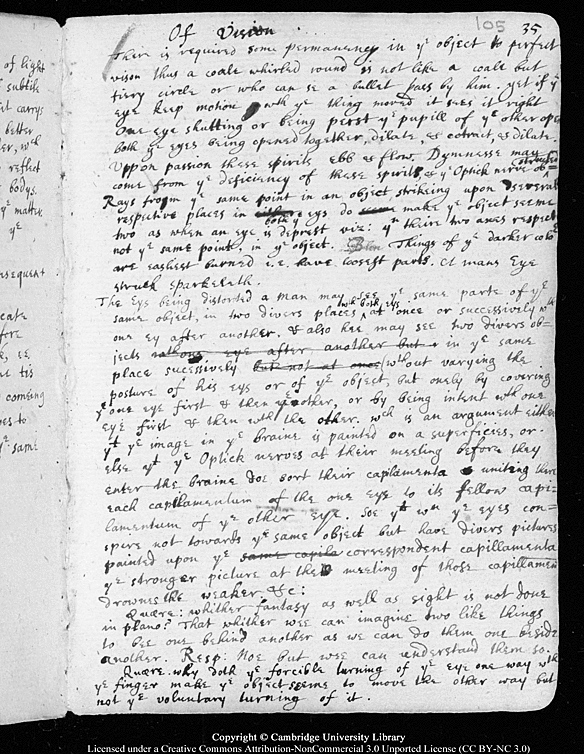 of light
subtile
it carrys
better
reflect
bodys.
yᵉ matter
yᵉ
nsequent
coming
105
35
Of Vision
There is required some permanency in yᵉ object to perfect
vison thus a coale whirled round is not like a coale but
fiery circle or who can see a bullet pass by him. yet if yᵉ
eye keep motion wth yᵉ thing moved it sees it right
One eye shutting or being perst yᵉ pupill of yᵉ other ope
both yᵉ eyes being opened together, dilate, & cotract, & dilate
Uppon passion these spirits ebb & flow. Dymnesse may
come from yᵉ deficiency of these spirits & yᵉ Optick nerve ob=
structed
Rays from yᵉ same point in an object strikeing upon severall
respective places in either both yᵉ eys do seeme make yᵉ object seeme
two as when an eye is deprest viz: yᵉ their two axes respect
not yᵉ same point, in yᵉ object. Things of yᵉ darker colo
are easliest burned i.e. have loosest parts. A mans Eye
struck sparkeleth.
The Eys being distorted a man may see yᵉ same parte of yᵉ
same object, in two divers places wth both eys at once or successively wth
one ey after another. & also hee may see two divers ob=
jects wth one eye after another but in yᵉ same
place sucessively but not at once (wthout varying the
posture of his eys or of yᵉ object, but onely by covering
yᵉ one eye first & then yᵉ other, or by being intent wth one
eye first & then wth the other. wch is an argument either
yt yᵉ image in yᵉ braine is painted on a superficies, or
else yt yᵉ Optick nerves at their meeting before they
enter the braine doe sort their capilamenta uniteing there
each capillamentum of the one eye to its fellow capi-
lamentum of yᵉ other eye. Soe yt wn yᵉ eyes con=
spire not towards yᵉ same object but have divers pictures
painted upon yᵉ same capila correspondent capillamenta
yᵉ stronger picture at the meeting of those capillamen
drownes the weaker, &c:
Quære: whither fantasy as well as sight is not done
in plano? That whither wee can imagine two like things
to bee one behind another as we can do them one beside
another. Resp: Noe but wee can understand them so.
Quære. why doth yᵉ forcible turning of yᵉ eye one way wth
yᵉ finger make yᵉ object seeme to move the other way but
not yᵉ voluntary turning of it.
Copyright © Cambridge University Library
Licensed under a Creative Commons Attribution-NonCommercial 3.0 Unported License (CC BY-NC 3.0)